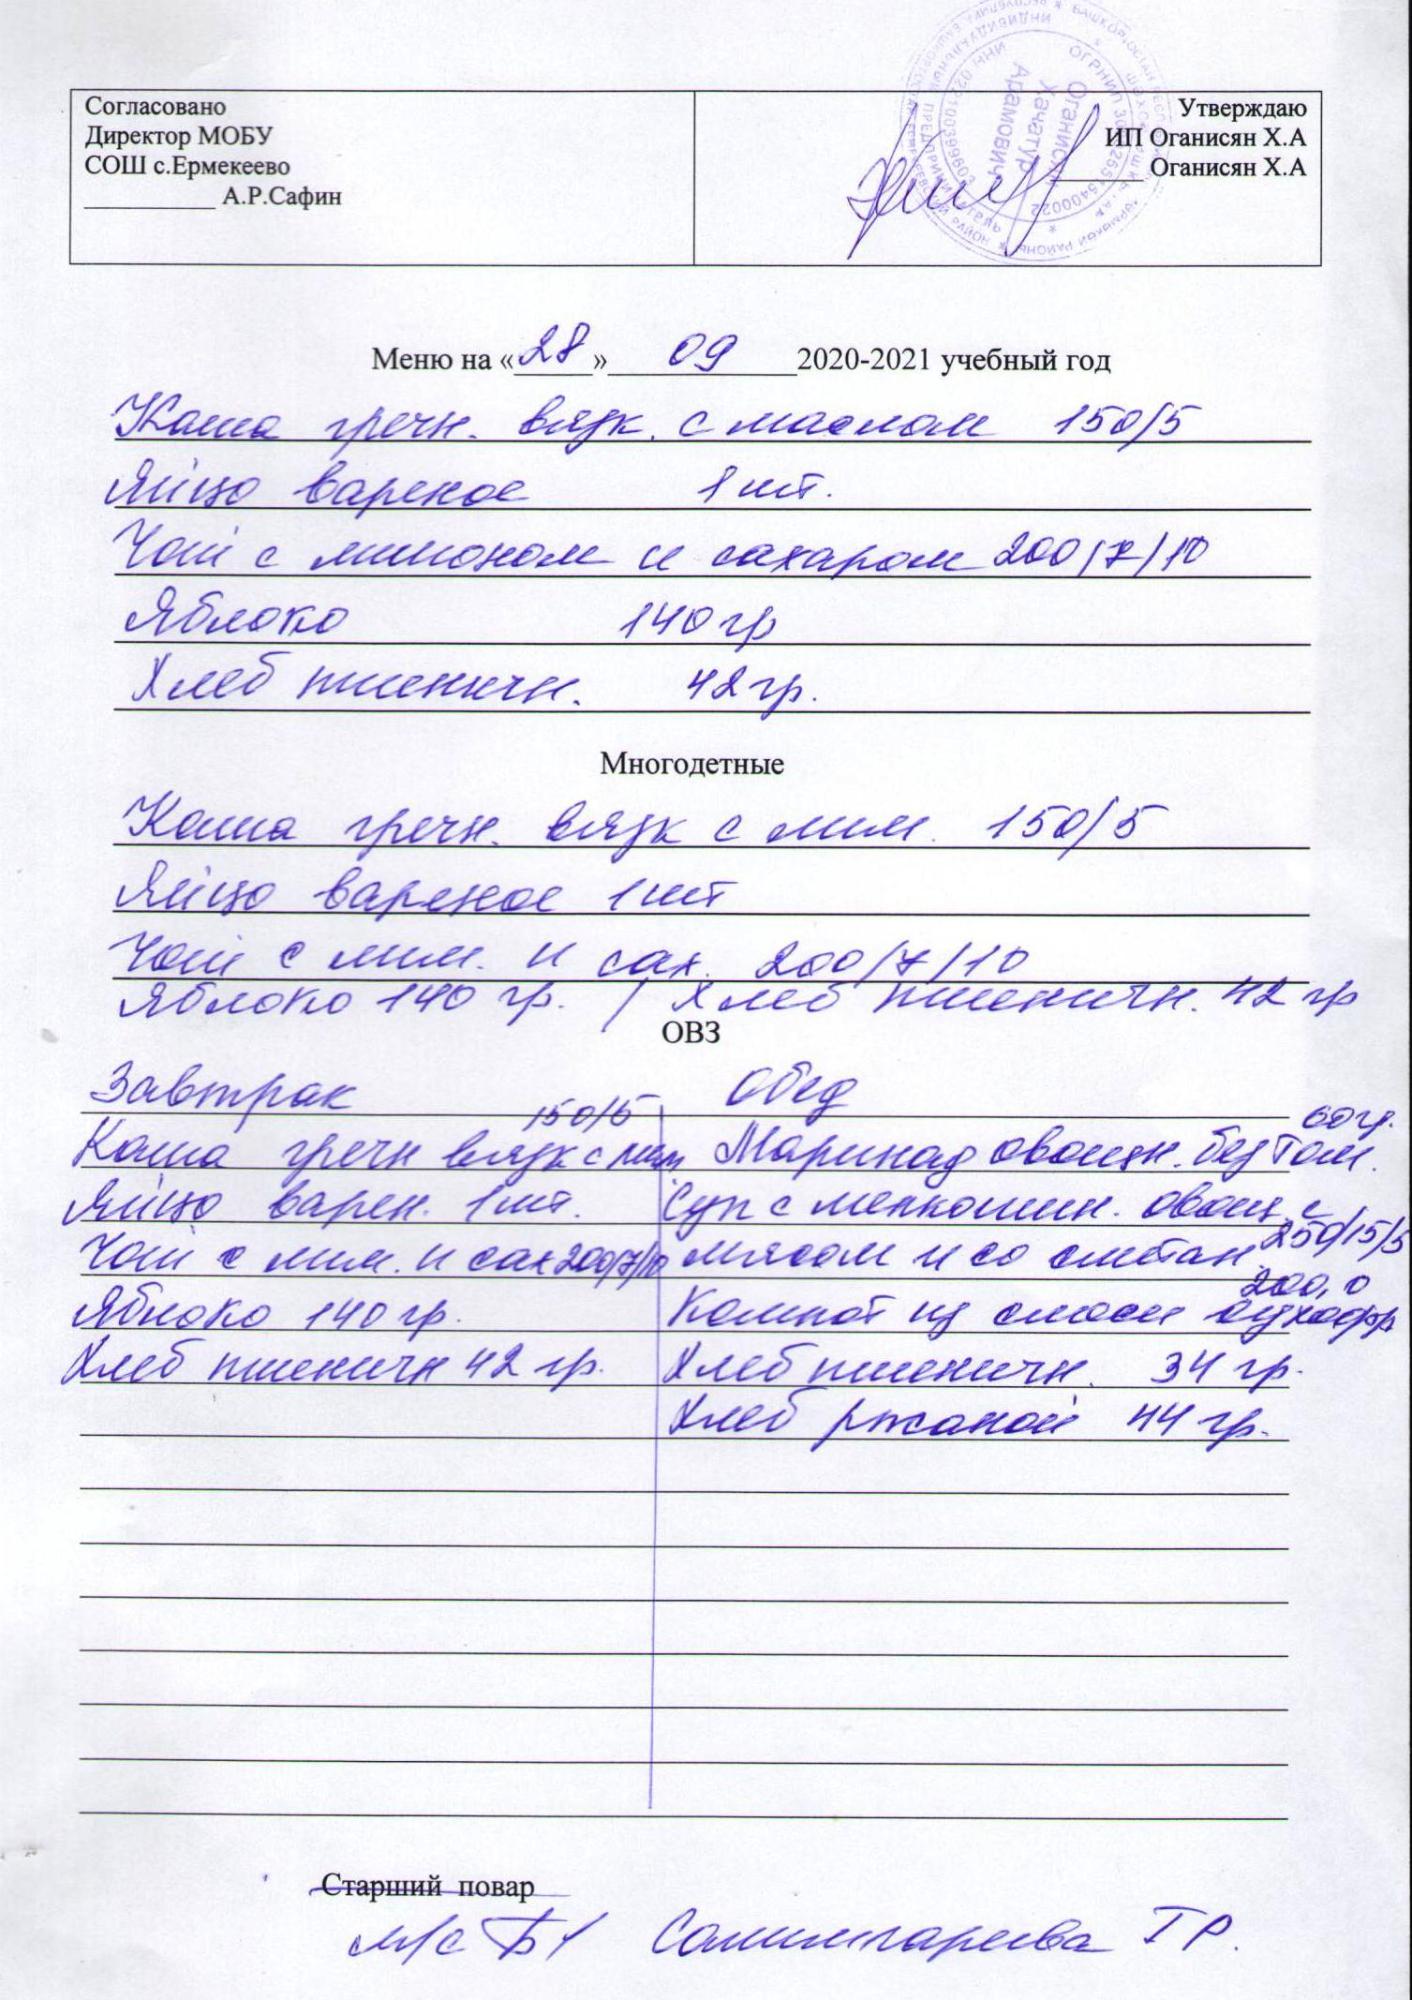 Согласовано
Директор МОБУ
СОШ с.Ермекеево
__________ А.Р.Сафин
Утверждаю
ИП Оганисян Х.А
_______ Оганисян Х.А
Оганисян
Хачатур
Арамович
Меню на «28» 09 2020-2021 учебный год
Каша гречн. вязк. с маслом 150/5
Яйцо вареное 1 шт.
Чай с лимоном и сахаром 200/7/10
Яблоко 140 гр
Хлеб пшеничн. 42 гр.
Многодетные
Каша гречн. вязк с 150/5
Яйцо вареное 1 шт
Чай с лим. и сах. 200/7/10
Яблоко 140 гр. / Хлеб пшеничн. 42 гр
ОВЗ
Завтрак
150/5
Каша гречн вязк с
Яйцо варен. 1 шт.
Чай с лим. и сах 200/7/10
Яблоко 140 гр.
Хлеб пшеничн 42 гр.
Обед
60 гр.
Маринад овощн. без том.
Суп с мелкошин. овощ. с
мясом и со сметан. 250/15/5
200,0
Компот из смеси сухофр
Хлеб пшеничн. 34 гр.
Хлеб ржаной 44 гр.
Старший повар
м/с Салимгареева Г Р.